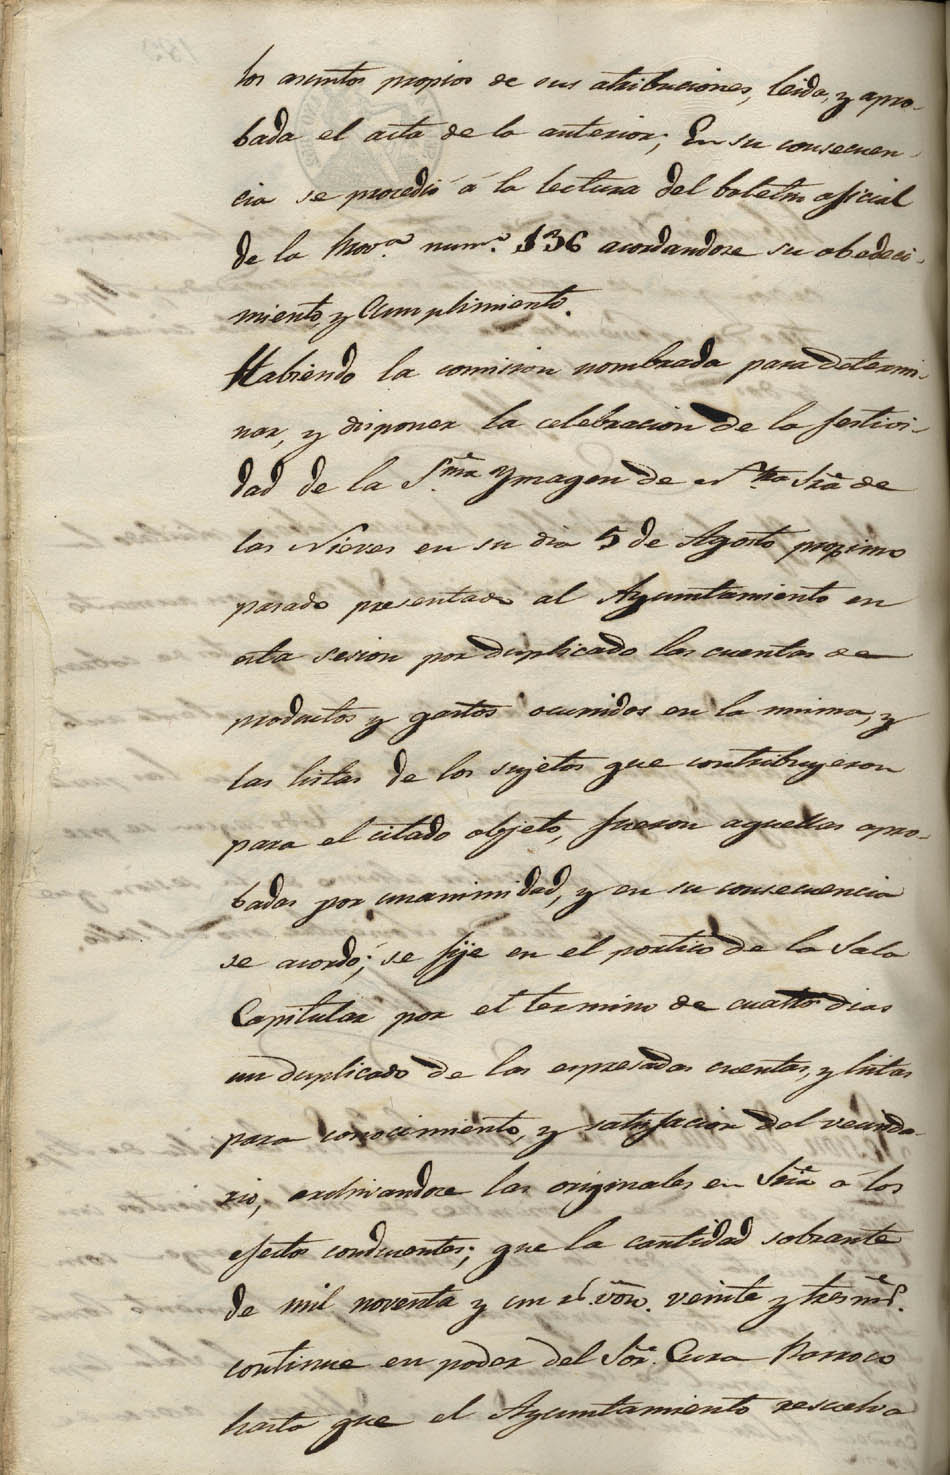 los asuntos propios de sus atribuciones, leida, y apro-
bada el acta de la anterior; En su consecuen-
cia se procedió á la lectura del boletin oficial
de la Prov.ª num.º 136 acordandose su obedeci-
miento, y Cumplimiento.
Habiendo la comision nombrada para determi-
nar, y disponer la celebracion de la festivi-
dad de la S.ma Ymagen de N.tra Srã de
las Nieves en su dia 5 de Agosto proximo
pasado presentado al Ayuntamiento en
esta sesion por duplicado las cuentas de
productos y gastos ocurridos en la misma, y
las listas de los sujetos que contribuyeron
para el citado objeto, fueron aquellas apro-
badas por unanimidad, y en su consecuencia
se acordó; se fije en el portico de la Sala
Capitular por el termino de cuatro dias
un duplicado de las espresadas cuentas, y listas
para conocimiento, y satisfacion del vecinda-
rio, archivandose las originales en Sriã á los
efectos conducentes; que la cantidad sobrante
de mil noventa y un r.s võn. veinte y tres m.s
continue en poder del Sõr. Cura Parroco
hasta que el Ayuntamiento resuelva